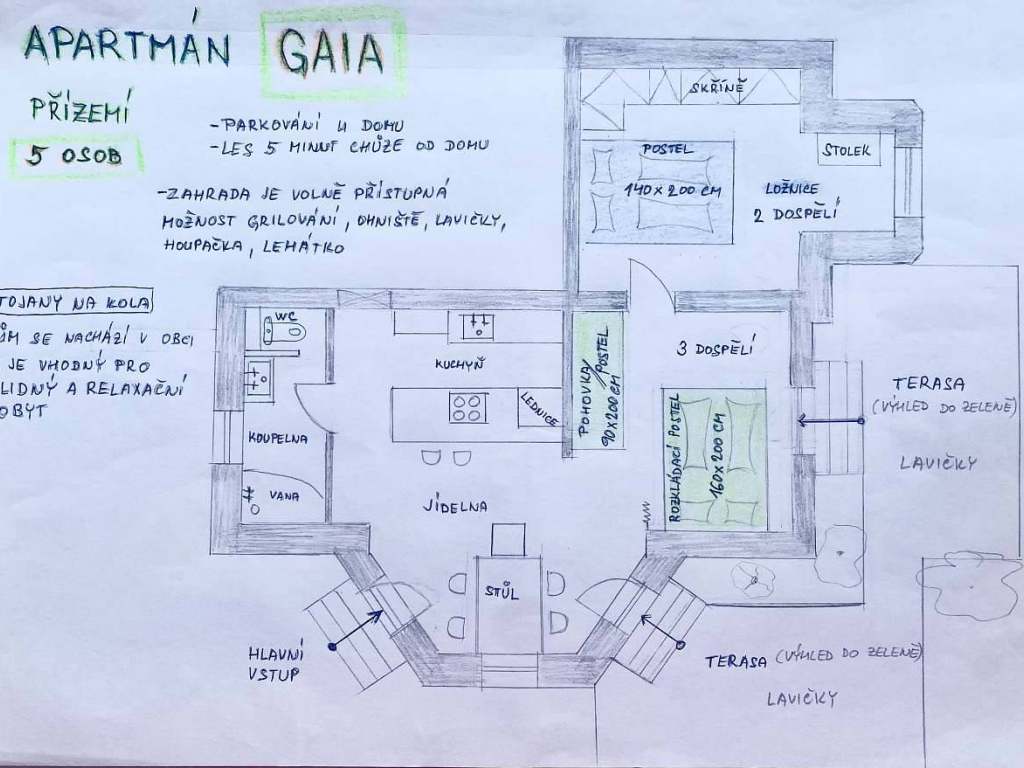 APARTMÁN GAIA
PŘÍZEMÍ
5 OSOB
- PARKOVÁNÍ U DOMU
- LES 5 MINUT CHŮZE OD DOMU
- ZAHRADA JE VOLNĚ PŘÍSTUPNÁ
MOŽNOST GRILOVÁNÍ, OHNIŠTĚ, LAVIČKY,
HOUPAČKA, LEHÁTKO
TOJANY NA KOLA
ŮM SE NACHÁZÍ V OBCI
JE VHODNÝ PRO
LIDNÝ A RELAXAČNÍ
OBYT
SKŘÍNĚ
STOLEK
POSTEL
140 x 200 CM
LOŽNICE
2 DOSPĚLÍ
WC
KUCHYŇ
LEDNICE
POHOVKA/POSTEL
90 x 200 CM
3 DOSPĚLÍ
ROZKLÁDACÍ POSTEL
160 x 200 CM
TERASA
(VÝHLED DO ZELENĚ)
LAVIČKY
KOUPELNA
VANA
JÍDELNA
STŮL
HLAVNÍ
VSTUP
TERASA (VÝHLED DO ZELENĚ)
LAVIČKY